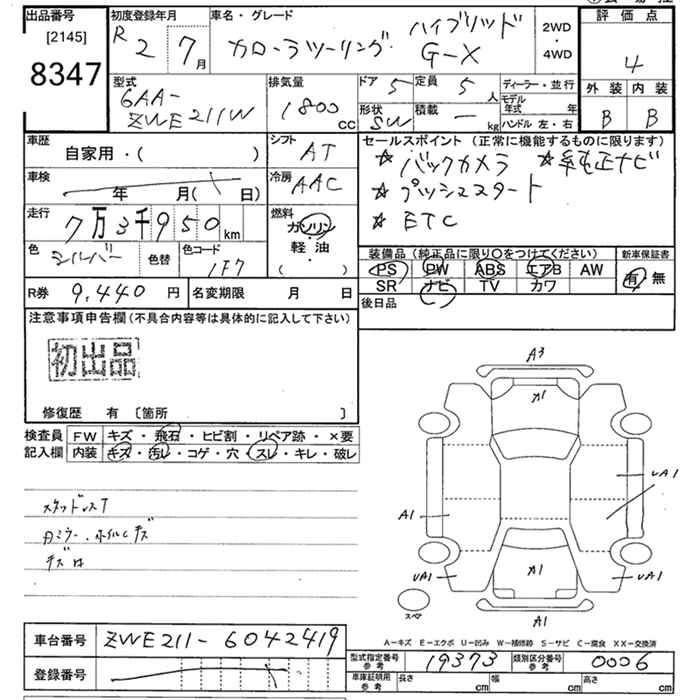 出品番号
[2145]
8347
初度登録年月
R 2 7月
車名・グレード
ハイブリッド
カローラツーリング G-X
2WD
・
4WD
評価点
4
外装 内装
B B
型式
6AA-
ZWE211W
排気量
1800 cc
ドア 5
定員 5 人
形状 SW
積載 - kg
ディーラー・並行
モデル
年式 年
ハンドル 左・右
車歴
自家用・( )
シフト AT
車検
年 月( 日)
冷房 AAC
走行
7万3千950km
燃料
ガソリン
軽・油
( )
色 シルバー 色替
色コード 1F7
R券 9,440 円
名変期限 月 日
セールスポイント(正常に機能するものに限ります)
☆ バックカメラ ☆ 純正ナビ
☆ プッシュスタート
☆ ETC
装備品(純正品に限り〇をつけてください)
新車保証書
PS PW ABS エアB AW
SR ナビ TV カワ
有・無
後日品
注意事項申告欄(不具合内容等は具体的に記入して下さい)
初出品
修復歴 有 〔箇所 〕
検査員
記入欄
FW キズ・飛石・ヒビ割・リペア跡・×要
内装 キズ・汚レ・コゲ・穴・スレ・キレ・破レ
スタッドレスT
ホイルCキズ
A3
A1
UA1
A1
UA1
A1
UA1
スペア
A1
A-キズ E-エクボ U-凹み W-補修跡 S-サビ C-腐食 XX-交換済
車台番号 ZWE211-6042419
登録番号
型式指定番号
参考
19373
類別区分番号
参考
0006
車庫証明用
参考
長さ cm
幅 cm
高さ cm